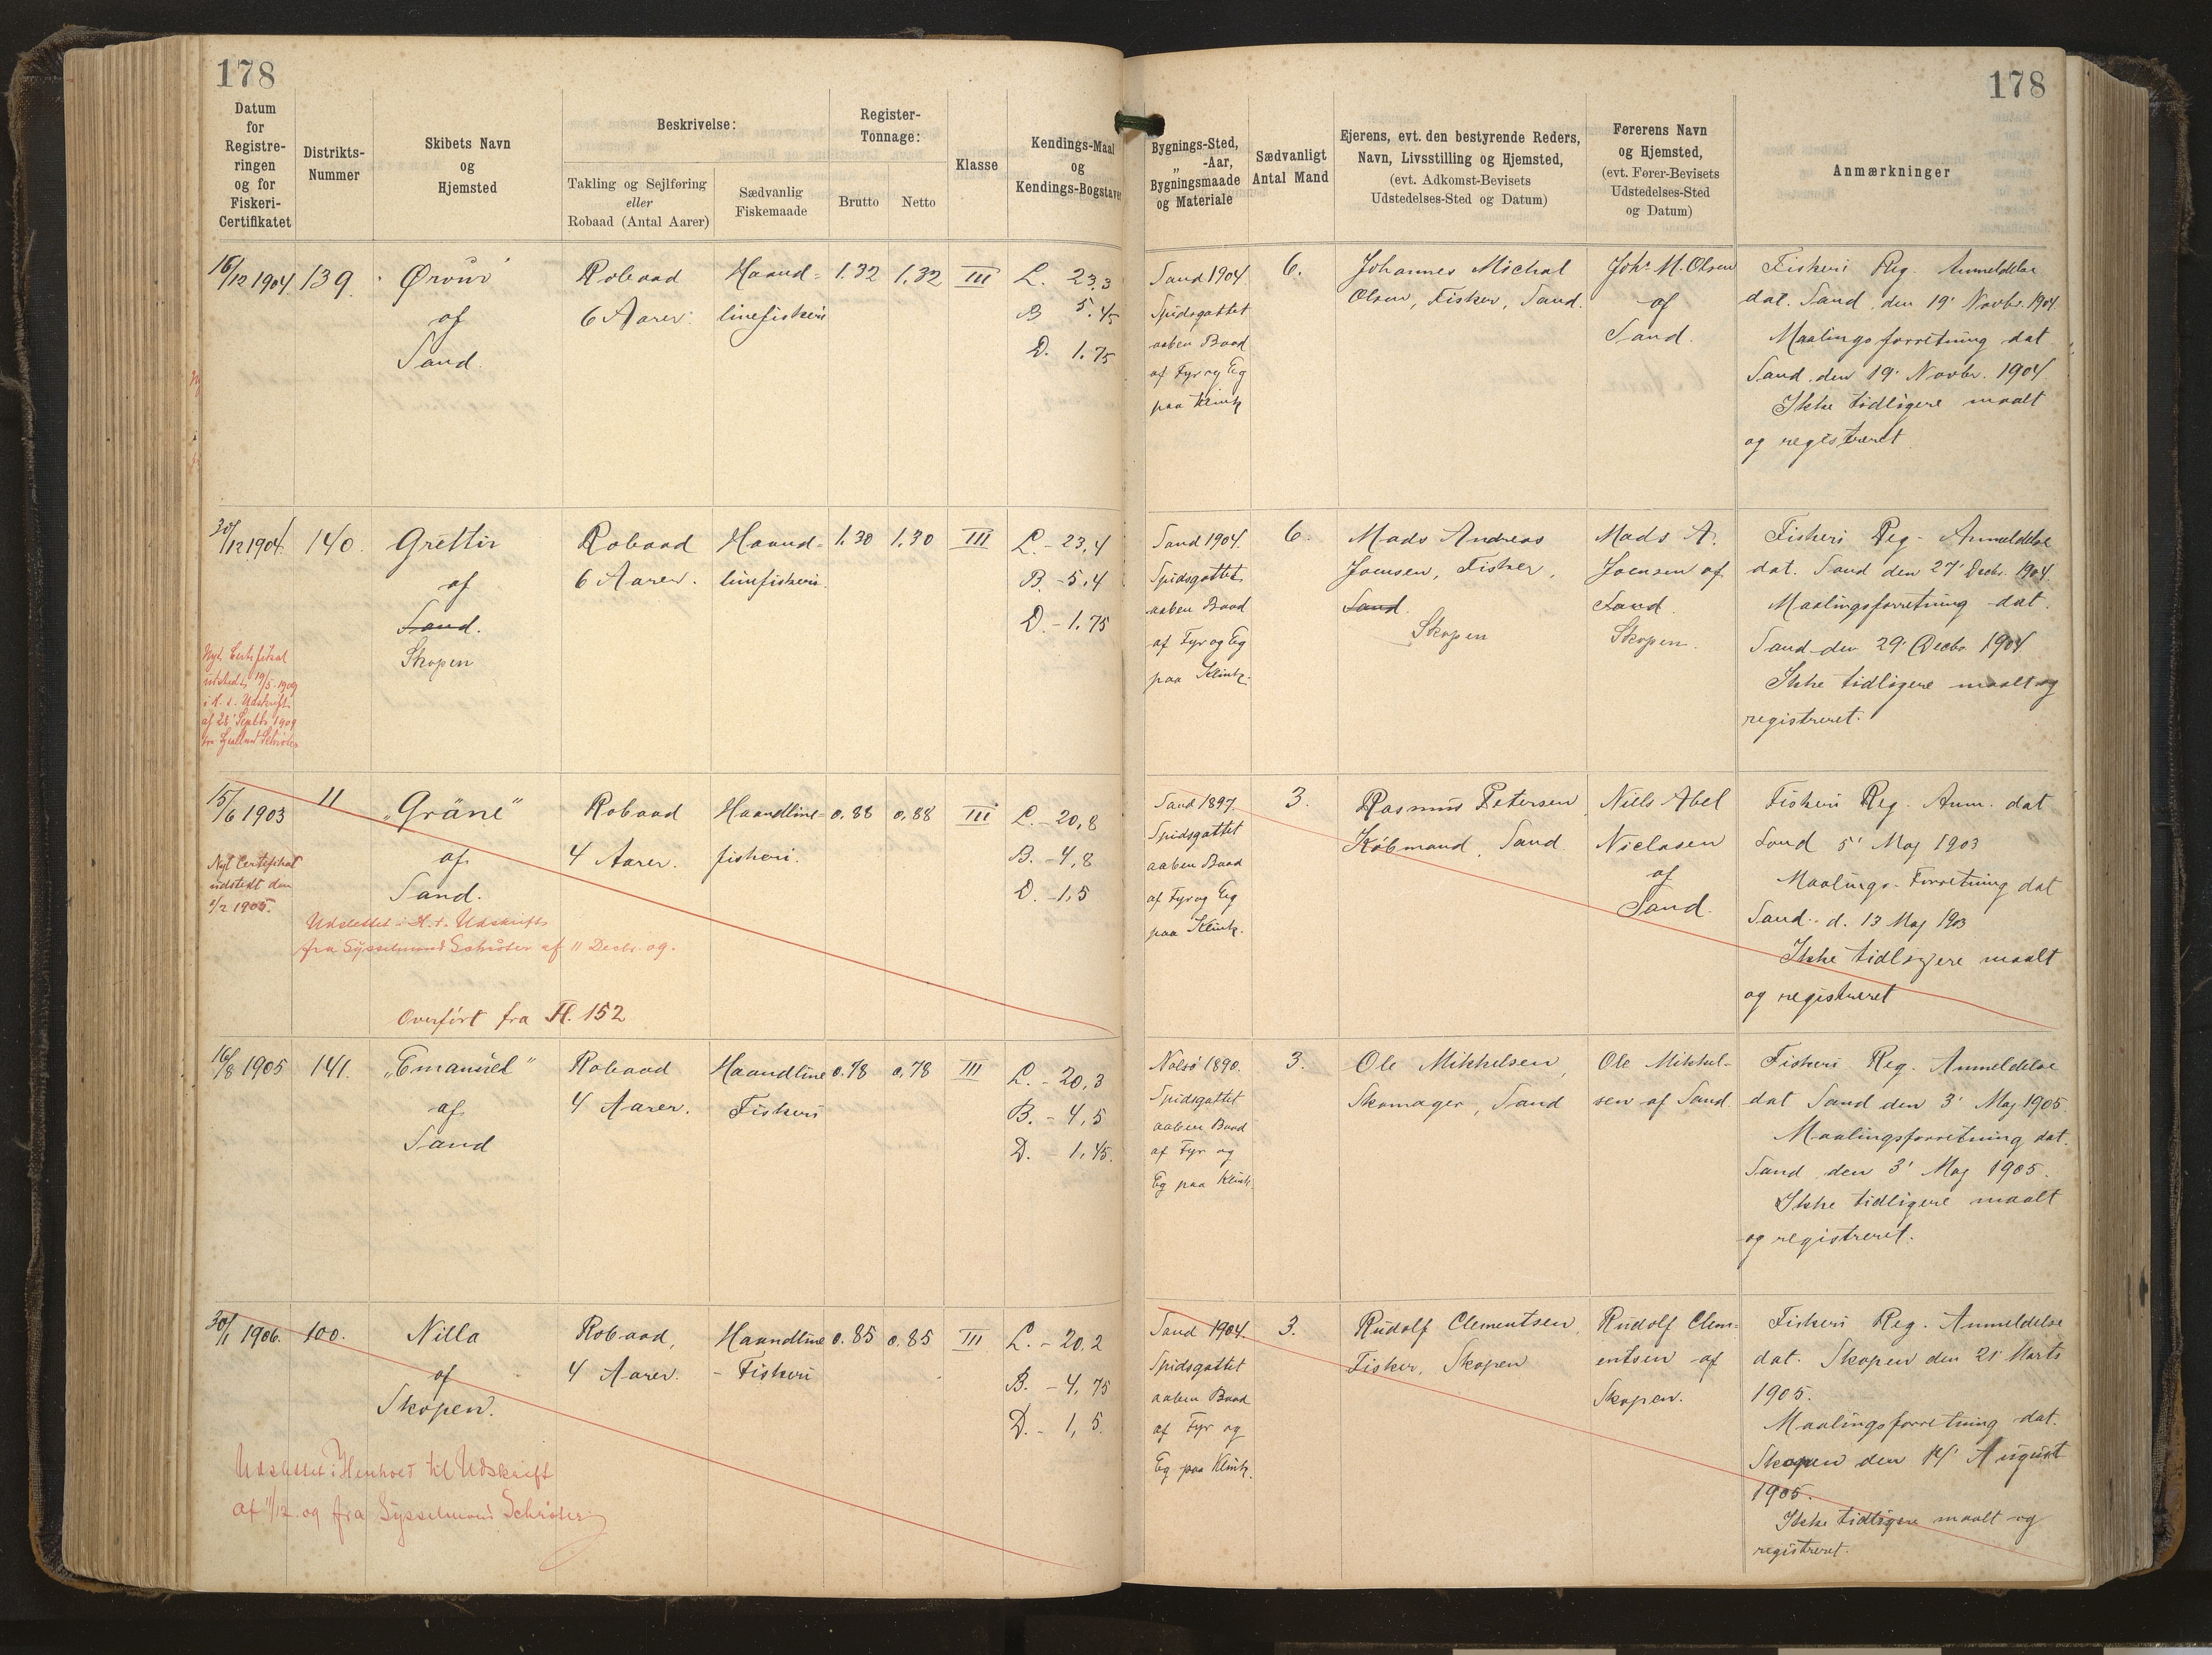 178
178
Datum
for
Registre-
ringen
og for
Fiskeri-
Certifikatet
Distrikts-
Nummer
Skibets Navn
og
Hjemsted
Beskrivelse:
Takling og Sejlføring
eller
Robaad (Antal Aarer)
Sædvanlig
Fiskemaade
Register-
Tonnage:
Brutto
Netto
Klasse
Kendings-Maal
og
Kendings-Bogstaver
Bygnings-Sted,
„ -Aar,
Bygningsmaade
og Materiale
Sædvanligt
Antal Mand
Ejerens, evt. den bestyrende Reders,
Navn, Livsstilling og Hjemsted,
(evt. Adkomst-Bevisets
Udstedelses-Sted og Datum)
Førerens Navn
og Hjemsted,
(evt. Fører-Bevisets
Udstedelses-Sted
og Datum)
Anmærkninger
16/12 1904
139.
Ørvur
af
Sand.
Robaad
6 Aarer.
Haand-
linefiskeri
1.32
1.32
III
L. 23,3
B 5.45
D. 1.75
Sand 1904.
Spidsgattet
aaben Baad
af Fyr og Eg
paa Klink
6.
Johannes Michal
Olsen, Fisker, Sand.
Johs M. Olsen
af
Sand.
Fiskeri Reg. Anmeldelse
dat. Sand den 19' Novbr. 1904.
Maalingsforretning dat
Sand den 19' Novbr. 1904
Ikke tidligere maalt
og registreret
30/12 1904.
140.
Grettir
af
Sand.
Skopen
Robaad
6 Aarer.
Haand-
linefiskeri.
1.30
1.30
III
L. - 23,4
B. - 5,4
D. - 1.75
Nyt Certifikat
udstedt 19/5 1909
i H. t. Udskrift
af 28' Septbr. 1909
fra Sysselmd Schröter
Sand 1904.
Spidsgattet
aaben Baad
af Fyr og Eg
paa Klink.
6.
Mads Andreas
Joensen, Fisker,
Sand.
Skopen
Mads A.
Joensen af
Sand.
Skopen.
Fiskeri Reg. Anmeldelse
dat. Sand den 27' Decbr. 1904.
Maalingsforretning dat.
Sand den 29' Decbr 1904
Ikke tidligere maalt og
registreret.
15/6 1903
11
„Gräne"
af
Sand.
Robaad
4 Aarer.
Haandline-
fiskeri.
0.88
0,88
III
L. - 20,8
B. - 4,8
D. - 1,5
Nyt Certifikat
udstedt den
1/2 1905.
Udslettet i H. t. Udskrift
fra Sysselmand Schröter af 11 Decbr. 09.
Overført fra Fl. 152
Sand 1897.
Spidsgattet
aaben Baad
af Fyr og Eg
paa Klink.
3.
Rasmus Petersen,
Købmand, Sand
Niels Abel
Niclasen
af
Sand.
Fiskeri Reg. Anm. dat
Sand 5' Maj 1903
Maalings-Forretning dat
Sand d. 13 Maj 1903
Ikke tidligere maalt
og registreret
16/8 1905
141.
„Emanuel"
af
Sand
Robaad
4 Aarer.
Haandline
Fiskeri
0.78
0,78
III
L. - 20,3
B. - 4,5
D. - 1,45.
Nolsö 1890.
Spidsgattet
aaben Baad
af Fyr og
Eg paa Klink.
3.
Ole Mikkelsen,
Skomager, Sand
Ole Mikkel-
sen af Sand.
Fiskeri Reg. Anmeldelse
dat Sand den 3' Maj 1905.
Maalingsforretning dat.
Sand den 3' Maj 1905.
Ikke tidligere maalt
og registreret.
30/1 1906.
100.
Nilla
af
Skopen.
Robaad,
4 Aarer.
Haandline
- Fiskeri
0.85
0.85
III
L. - 20.2
B. - 4,75
D. - 1,5.
Udslettet i Henhold til Udskrift
af 11/12 09 fra Sysselmand Schröter
Sand 1904.
Spidsgattet
aaben Baad
af Fyr og
Eg paa Klink.
3.
Rudolf Clementsen,
Fisker, Skopen
Rudolf Clem-
entsen af
Skopen.
Fiskeri Reg. Anmeldelse
dat. Skopen den 21' Marts
1905.
Maalingsforretning dat.
Skopen den 14' August
1905.
Ikke tidligere maalt og
registreret.